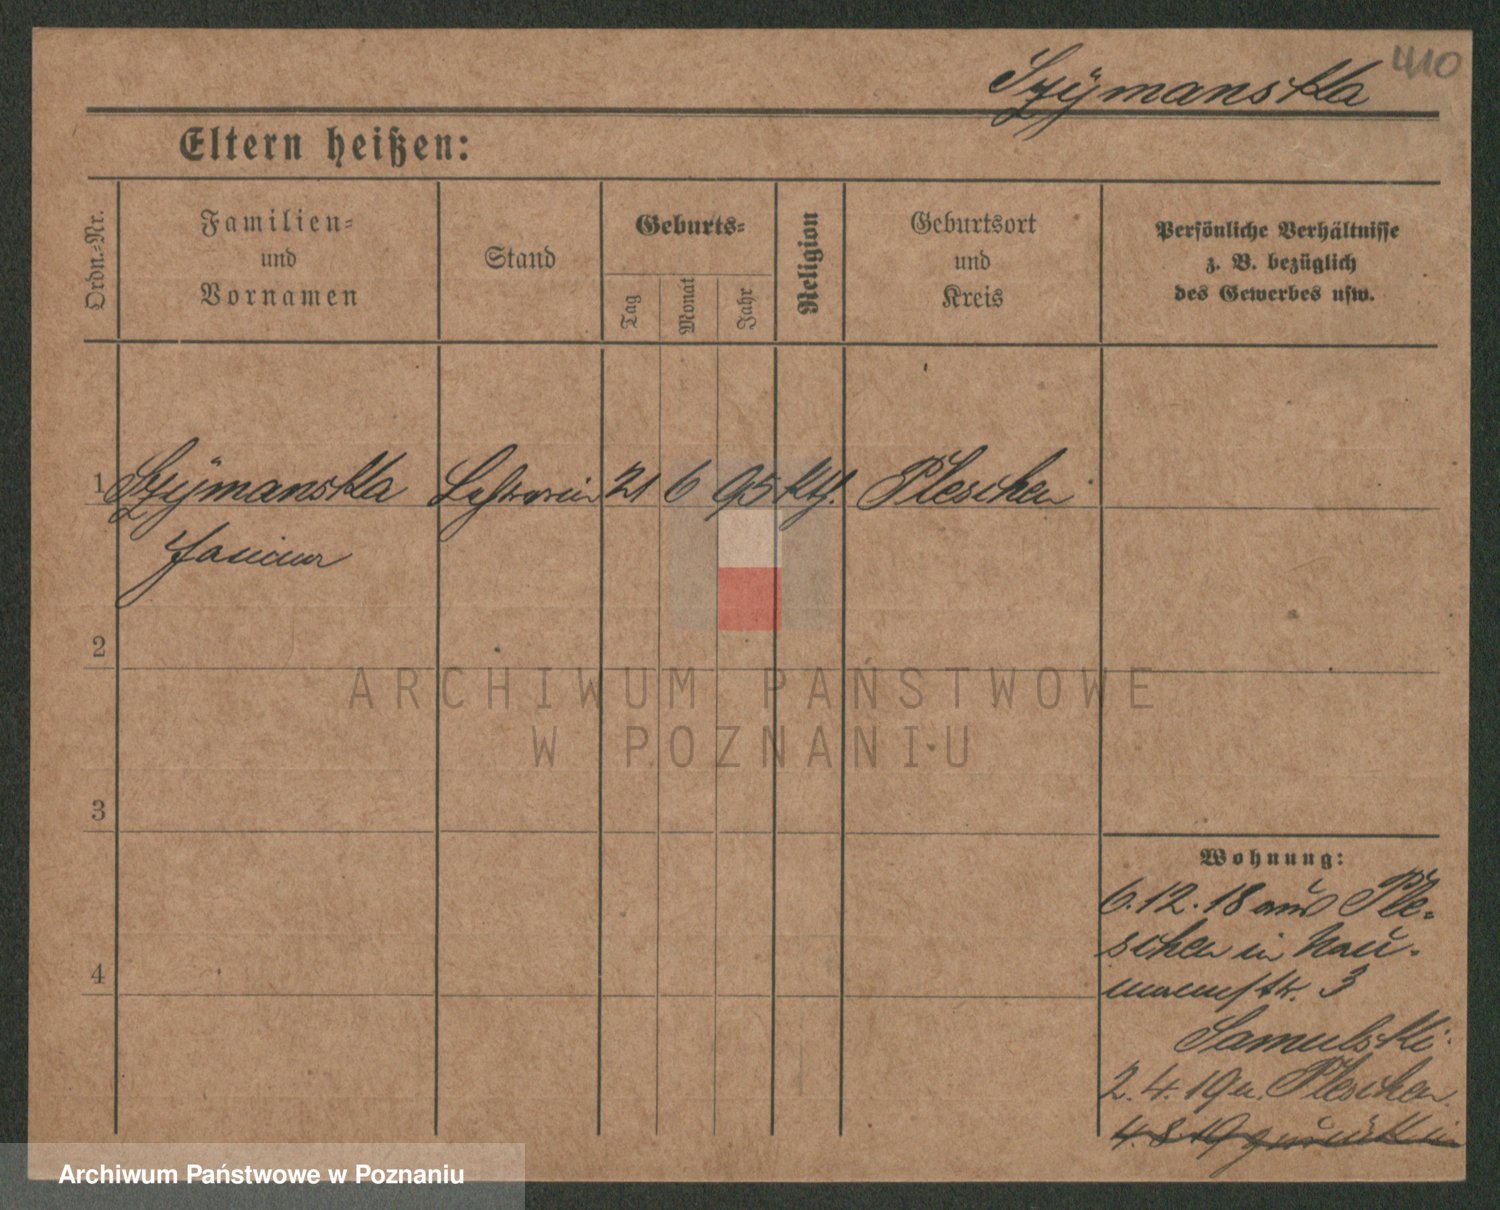 410
Szymanska
Eltern heißen:
Ordn.-Nr.
Familien-
und
Vornamen
Stand
Geburts-
Tag
Monat
Jahr
Religion
Geburtsort
und
Kreis
Persönliche Verhältnisse
z. B. bezüglich
des Gewerbes usw.
1 Szymanska 21 6 95 kth. Pleschen
Janina
2
3
4
ARCHIWUM PAŃSTWOWE
W POZNANIU
Wohnung:
6.12.18 aus Ple-
schen in Nau-
mannstr. 3
Samulski.
2.4.19 n. Pleschen.
4.8.19 zurück in
Archiwum Państwowe w Poznaniu